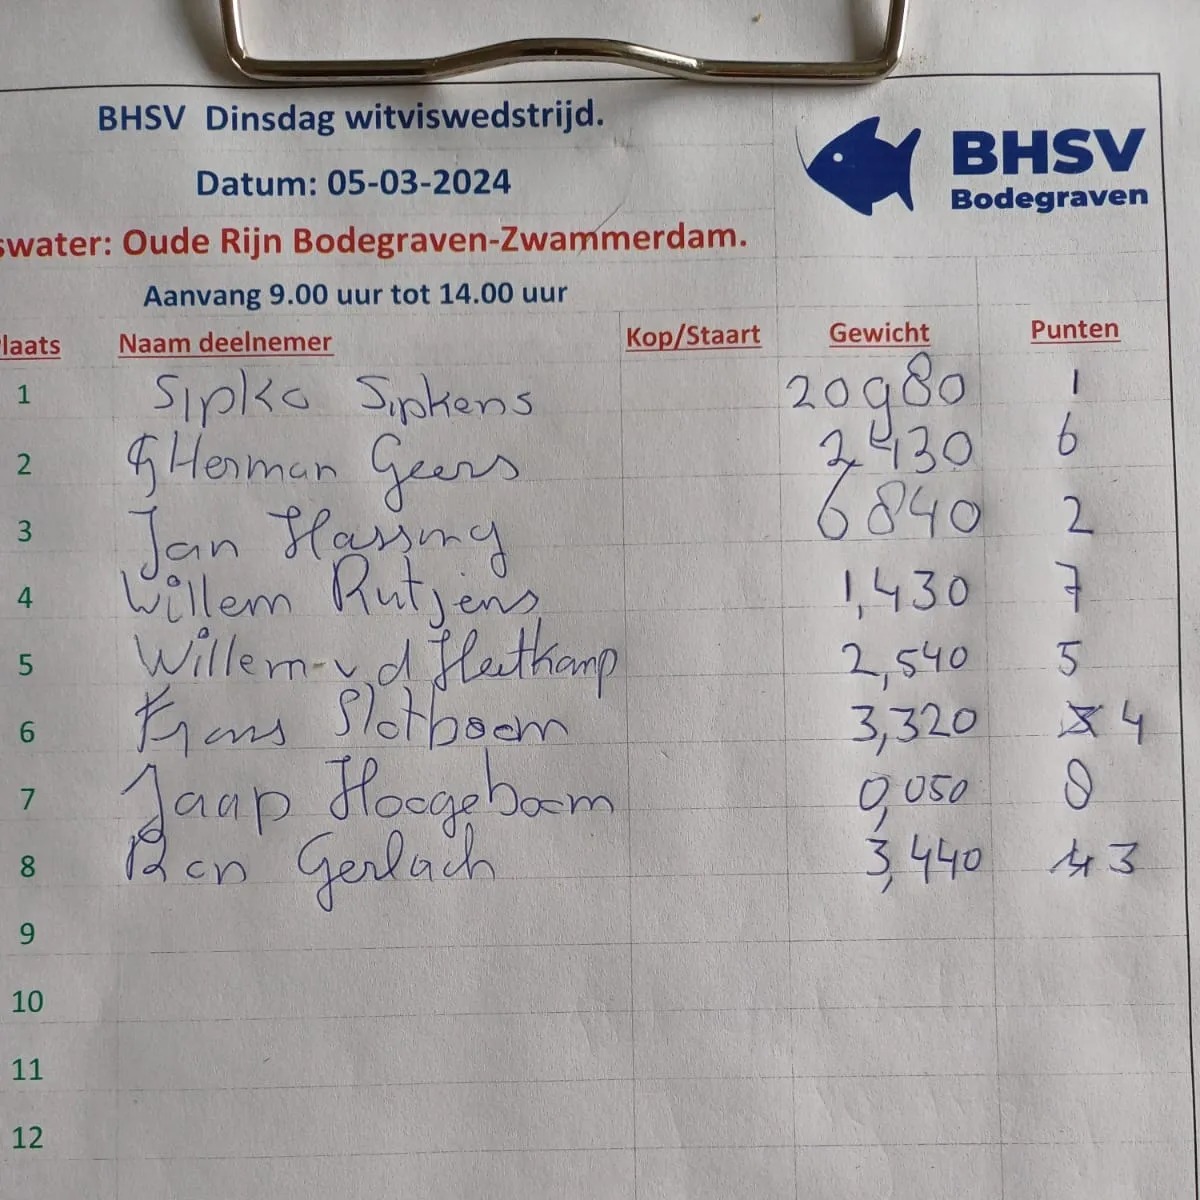 BHSV Dinsdag witviswedstrijd.
BHSV
Bodegraven
Datum: 05-03-2024
swater: Oude Rijn Bodegraven-Zwammerdam.
Aanvang 9.00 uur tot 14.00 uur
laats Naam deelnemer Kop/Staart Gewicht Punten
1 Sipko Sipkens 20980 1
2 Herman Geers 2,430 6
3 Jan Hassing 6840 2
4 Willem Rutjens 1,430 7
5 Willem v.d Heetkamp 2,540 5
6 Frans Slotboom 3,320 4
7 Jaap Hoogeboom 0,050 8
8 Ron Gerlach 3,440 3
9
10
11
12